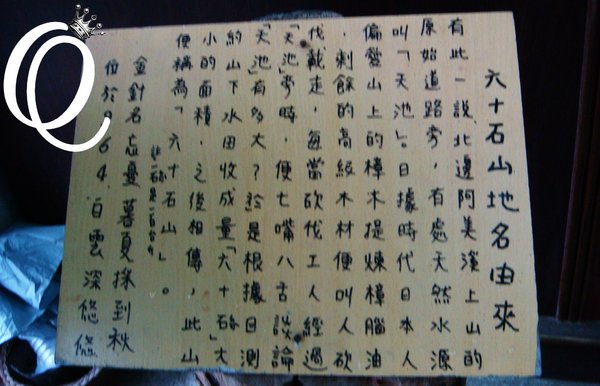 六十石山地名由來
有此一說,北邊阿美溪上山的
原始道路旁,有處天然水源
叫「天池」。日據時代日本人
偏愛山上的樟木提煉樟腦油
,剩餘的高級木材便叫人砍
伐載走,每當砍伐工人經過
「天池」旁時,便七嘴八舌談論
「天池」有多大?於是根據目測
約山下水田收成量「六十石」大
小的面積,之後相傳,此山
便稱為「六十石山」。
金針名忘憂暮夏採到秋
位於964.白雲深悠悠